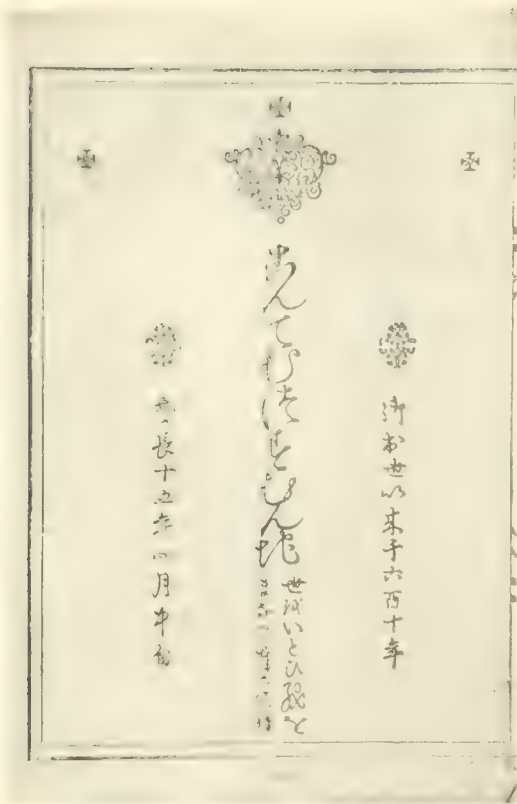 御出世以来千六百十年
こんてむつすむん地
世越いとひ
慶長十五年四月中旬